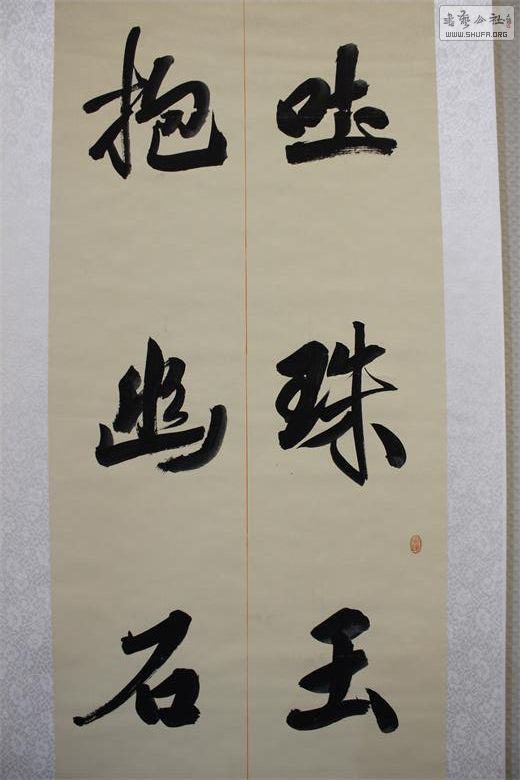 吐珠玉
抱幽石
書藝公社
WWW.SHUFA.ORG